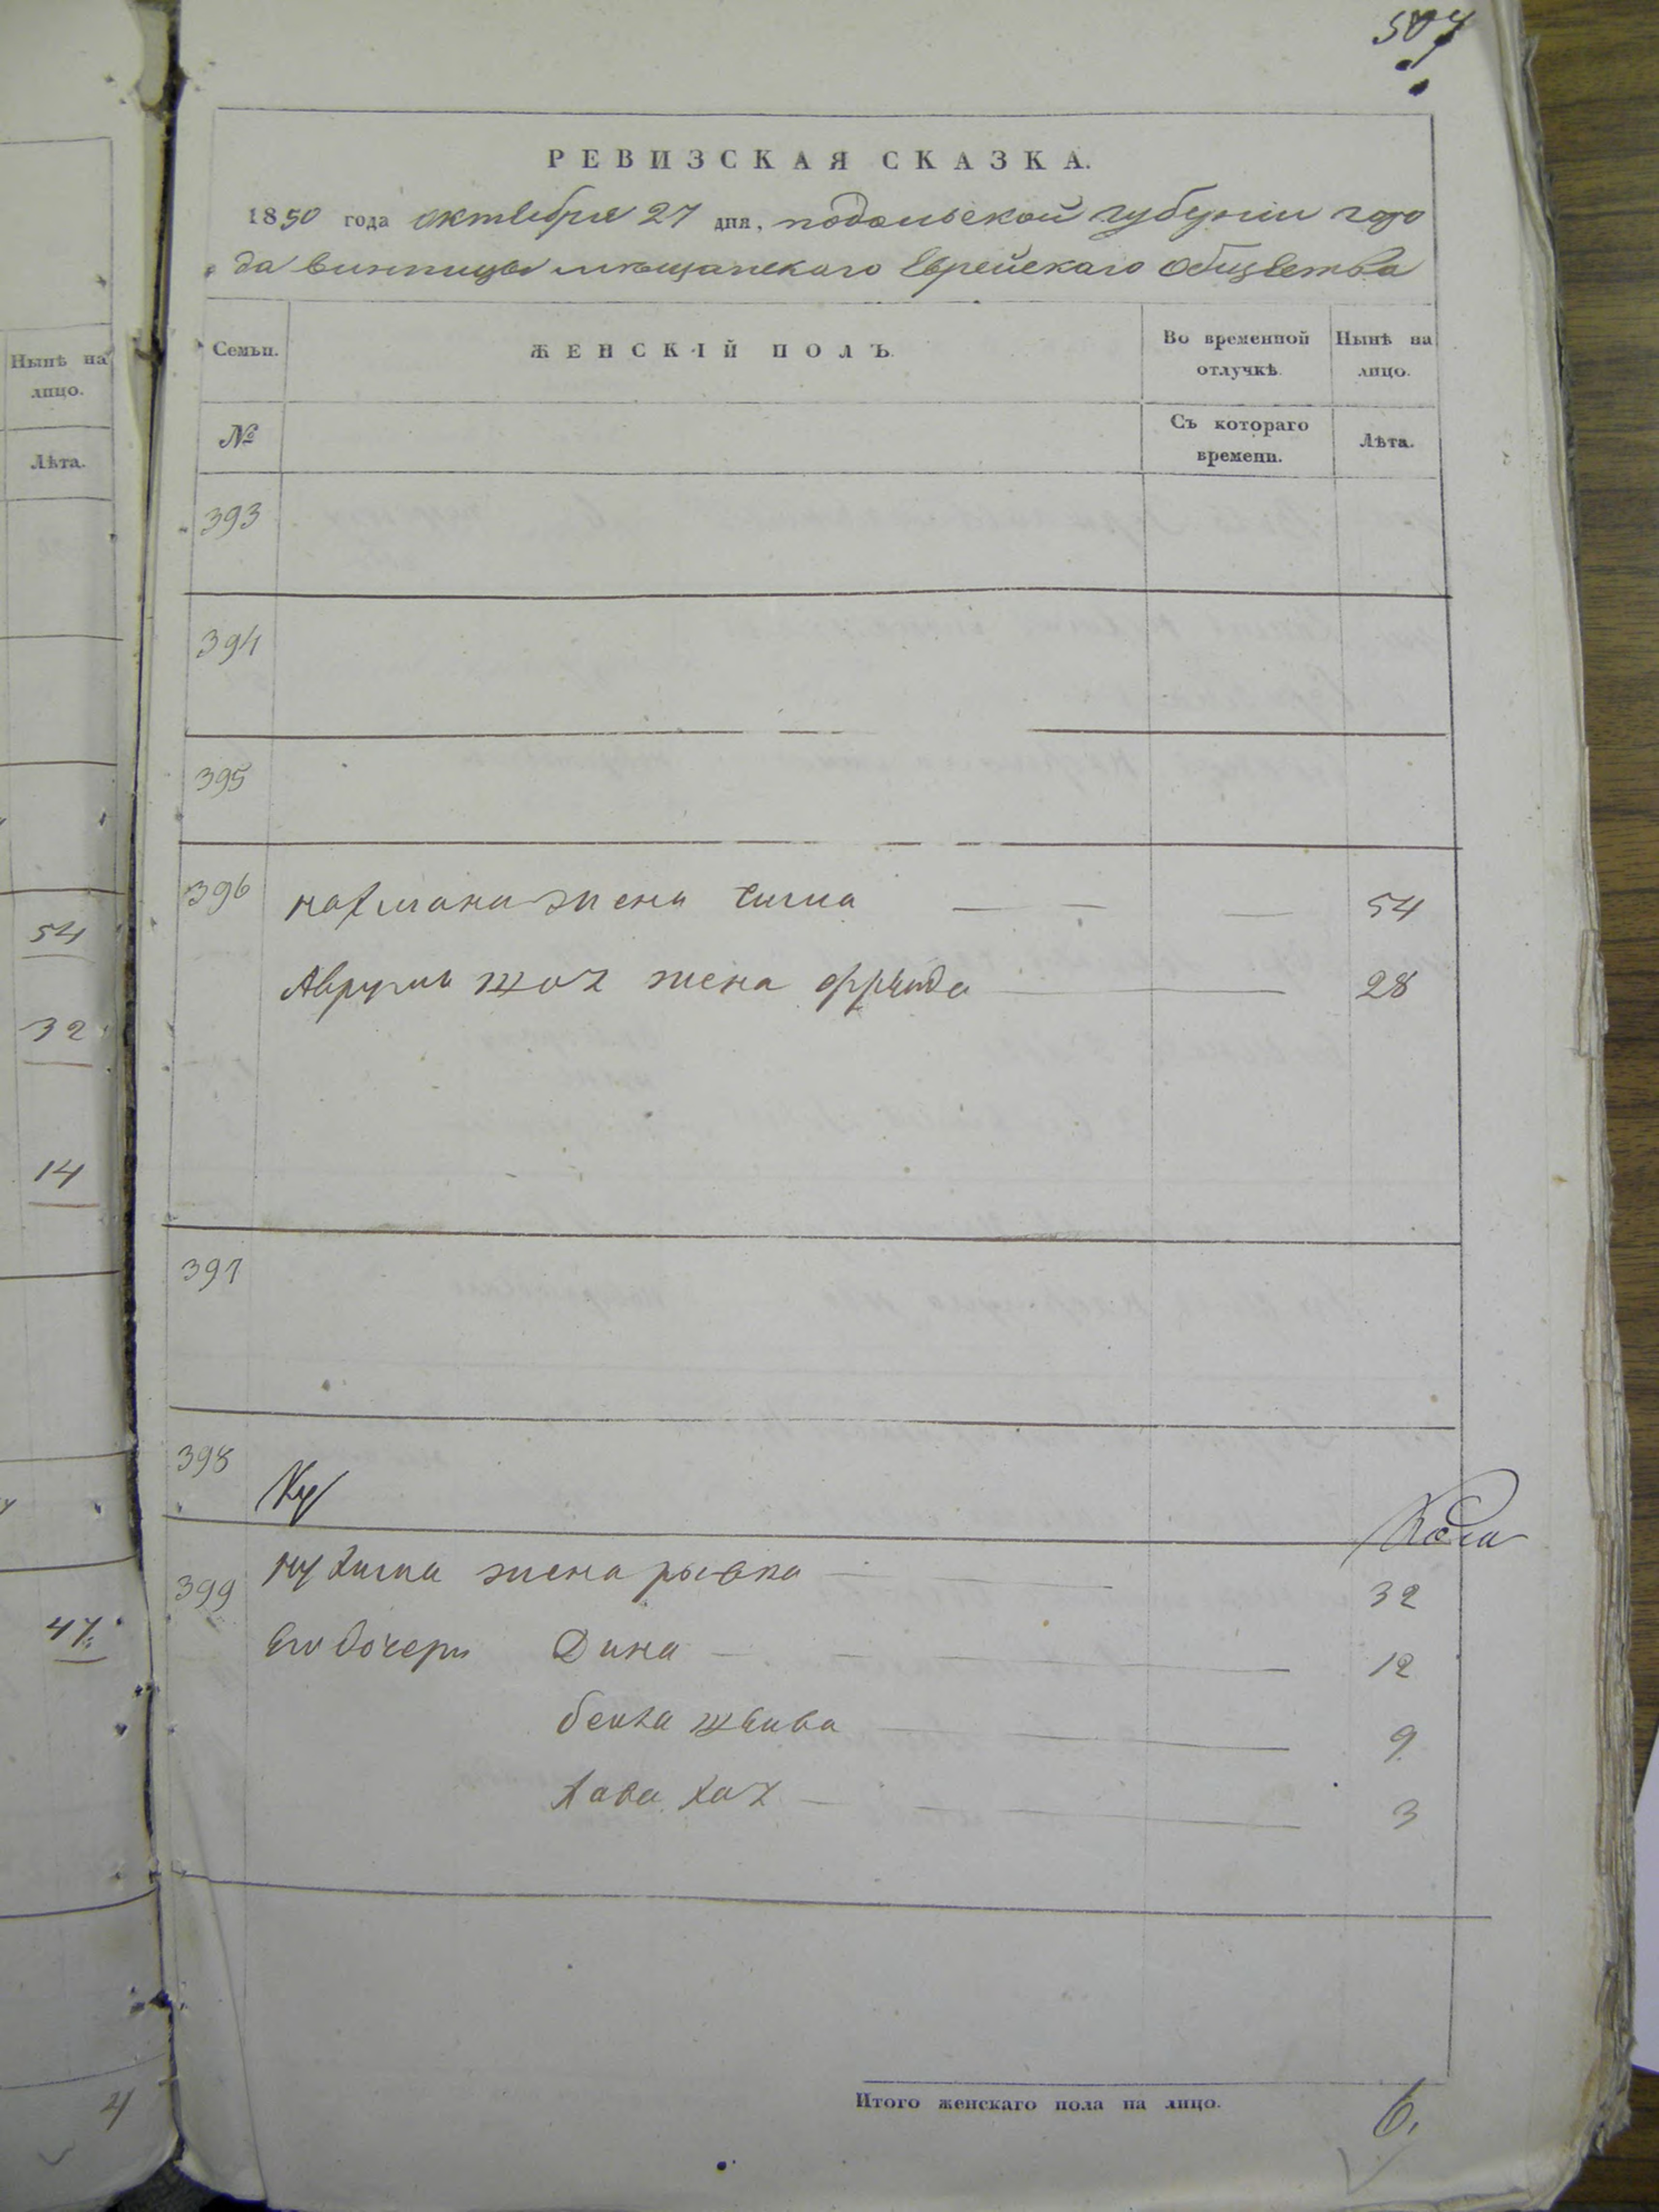 504
РЕВИЗСКАЯ СКАЗКА.
1850 года октября 27 дня, подольской губернии горо
да винницы мѣщанскаго Еврейскаго общества
Нынѣ на лицо.
Лѣта.
54
32
14
47
4
Семьи.
ЖЕНСКІЙ ПОЛЪ.
Во временной отлучкѣ.
Нынѣ на лицо.
№
Съ котораго времени.
Лѣта.
393
394
395
396 нахмана жена 54
жена фрейда 28
397
398
Ку
399 нухима жена рывка 32
Его дочери Дина 12
бейла 9
хава 3
Итого женскаго пола на лицо.
6.